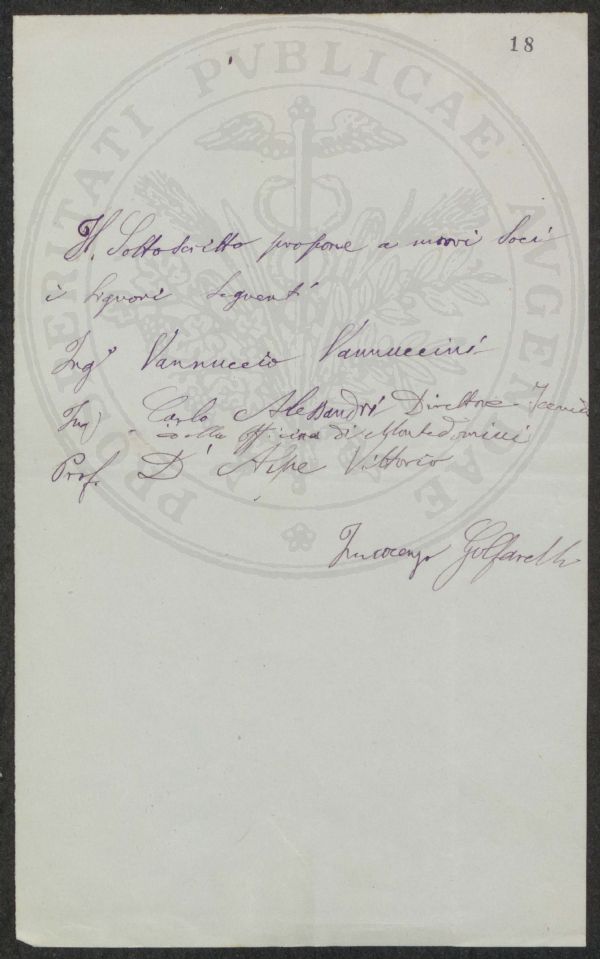 18
PROSPERITATI PVBLICAE AVGENDAE
Il Sottoscritto propone a nuovi Soci
i Signori Seguenti
Ingº Vannuccio Vannuccini
Ing Carlo Alessandri Direttore
della Officina di Montedomini
Prof. D' Vittorio
Innocenzo Golfarelli